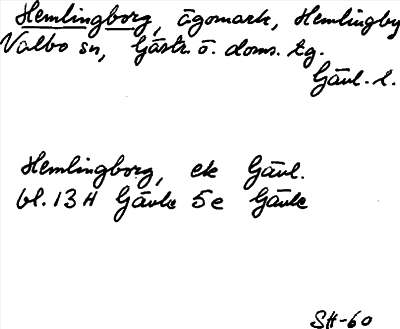 Hemlingborg, ägomark, Hemlingby
Valbo sn, Gästr. ö. doms. tg.
Gävl. l.
Hemlingborg, ek Gävl.
bl. 13 H Gävle 5e Gävle
SH-60